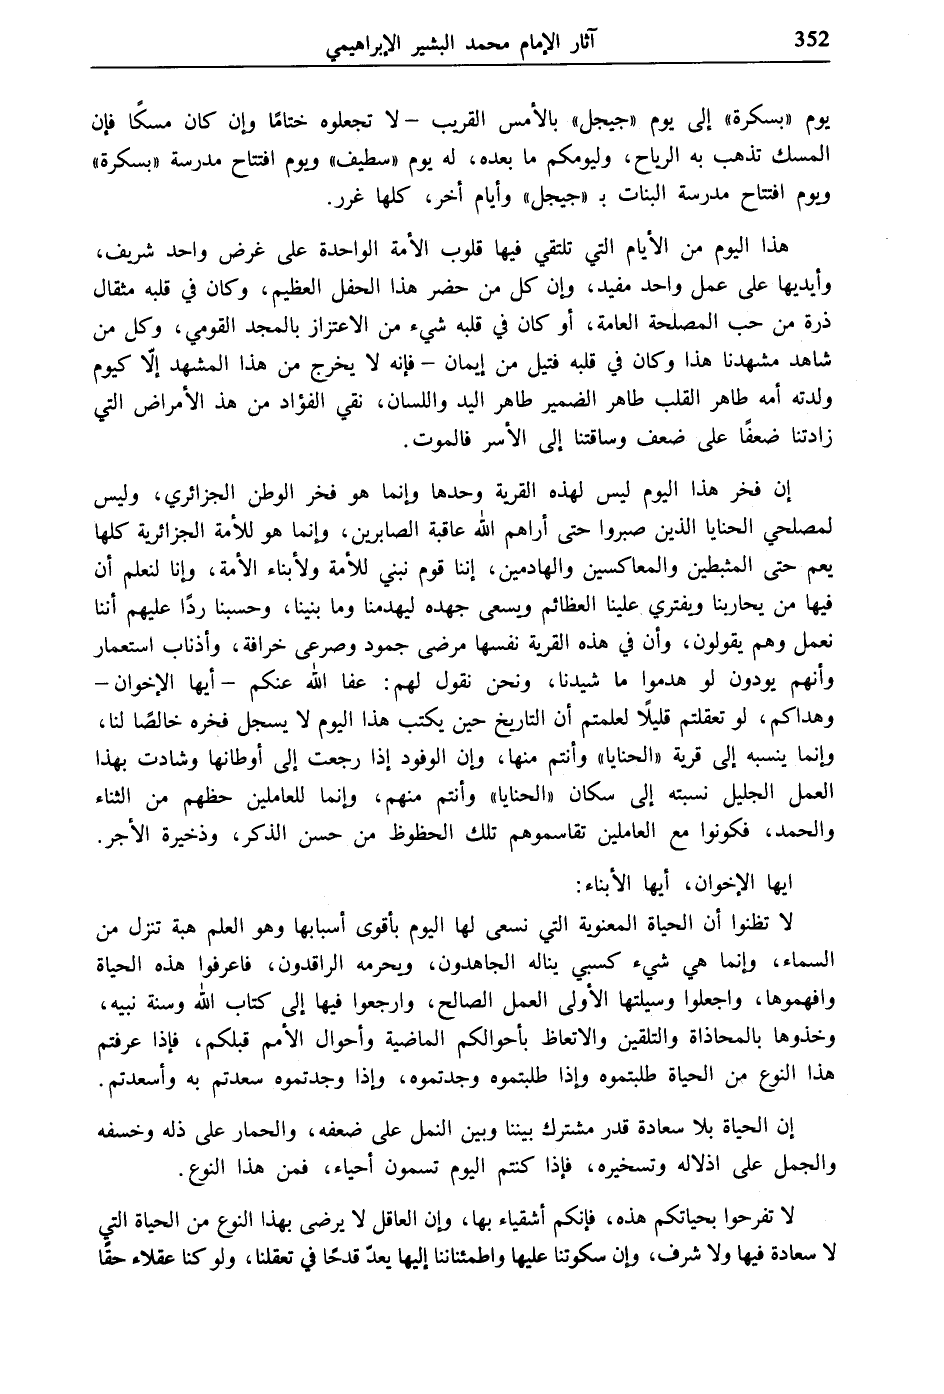 352
آثار الإمام محمد البشير الإبراهيمي
يوم «بسكرة» إلى يوم «جيجل» بالأمس القريب – لا تجعلوه ختامًا وإن كان مسكًا فإن
المسك تذهب به الرياح، وليومكم ما بعده، له يوم «سطيف» ويوم افتتاح مدرسة «بسكرة»
ويوم افتتاح مدرسة البنات بـ «جيجل» وأيام أخر، كلها غرر.
هذا اليوم من الأيام التي تلتقي فيها قلوب الأمة الواحدة على غرض واحد شريف،
وأيديها على عمل واحد مفيد، وإن كل من حضر هذا الحفل العظيم، وكان في قلبه مثقال
ذرة من حب المصلحة العامة، أو كان في قلبه شيء من الاعتزاز بالمجد القومي، وكل من
شاهد مشهدنا هذا وكان في قلبه فتيل من إيمان – فإنه لا يخرج من هذا المشهد إلّا كيوم
ولدته أمه طاهر القلب طاهر الضمير طاهر اليد واللسان، نقي الفؤاد من هذ الأمراض التي
زادتنا ضعفًا على ضعف وساقتنا إلى الأسر فالموت.
إن فخر هذا اليوم ليس لهذه القرية وحدها وإنما هو فخر الوطن الجزائري، وليس
لمصلحي الحنايا الذين صبروا حتى أراهم الله عاقبة الصابرين، وإنما هو للأمة الجزائرية كلها
يعم حتى المثبطين والمعاكسين والهادمين، إننا قوم نبني للأمة ولأبناء الأمة، وإنا لنعلم أن
فيها من يحاربنا ويفتري علينا العظائم ويسعى جهده ليهدمنا وما بنينا، وحسبنا ردًا عليهم أننا
نعمل وهم يقولون، وأن في هذه القرية نفسها مرضى جمود وصرعى خرافة، وأذناب استعمار
وأنهم يودون لو هدموا ما شيدنا، ونحن نقول لهم: عفا الله عنكم – أيها الإخوان–
وهداكم، لو تعقلتم قليلًا لعلمتم أن التاريخ حين يكتب هذا اليوم لا يسجل فخره خالصًا لنا،
وإنما ينسبه إلى قرية «الحنايا» وأنتم منها، وإن الوفود إذا رجعت إلى أوطانها وشادت بهذا
العمل الجليل نسبته إلى سكان «الحنايا» وأنتم منهم، وإنما للعاملين حظهم من الثناء
والحمد، فكونوا مع العاملين تقاسموهم تلك الحظوظ من حسن الذكر، وذخيرة الأجر.
ايها الإخوان، أيها الأبناء:
لا تظنوا أن الحياة المعنوية التي نسعى لها اليوم بأقوى أسبابها وهو العلم هبة تنزل من
السماء، وإنما هي شيء كسبي يناله الجاهدون، ويحرمه الراقدون، فاعرفوا هذه الحياة
وافهموها، واجعلوا وسيلتها الأولى العمل الصالح، وارجعوا فيها إلى كتاب الله وسنة نبيه،
وخذوها بالمحاذاة والتلقين والاتعاظ بأحوالكم الماضية وأحوال الأمم قبلكم، فإذا عرفتم
هذا النوع من الحياة طلبتموه وإذا طلبتموه وجدتموه، وإذا وجدتموه سعدتم به وأسعدتم.
إن الحياة بلا سعادة قدر مشترك بيننا وبين النمل على ضعفه، والحمار على ذله وخسفه
والجمل على اذلاله وتسخيره، فإذا كنتم اليوم تسمون أحياء، فمن هذا النوع.
لا تفرحوا بحياتكم هذه، فإنكم أشقياء بها، وإن العاقل لا يرضى بهذا النوع من الحياة التي
لا سعادة فيها ولا شرف، وإن سكوتنا عليها واطمئناننا إليها يعدّ قدحًا في تعقلنا، ولو كنا عقلاء حقًا